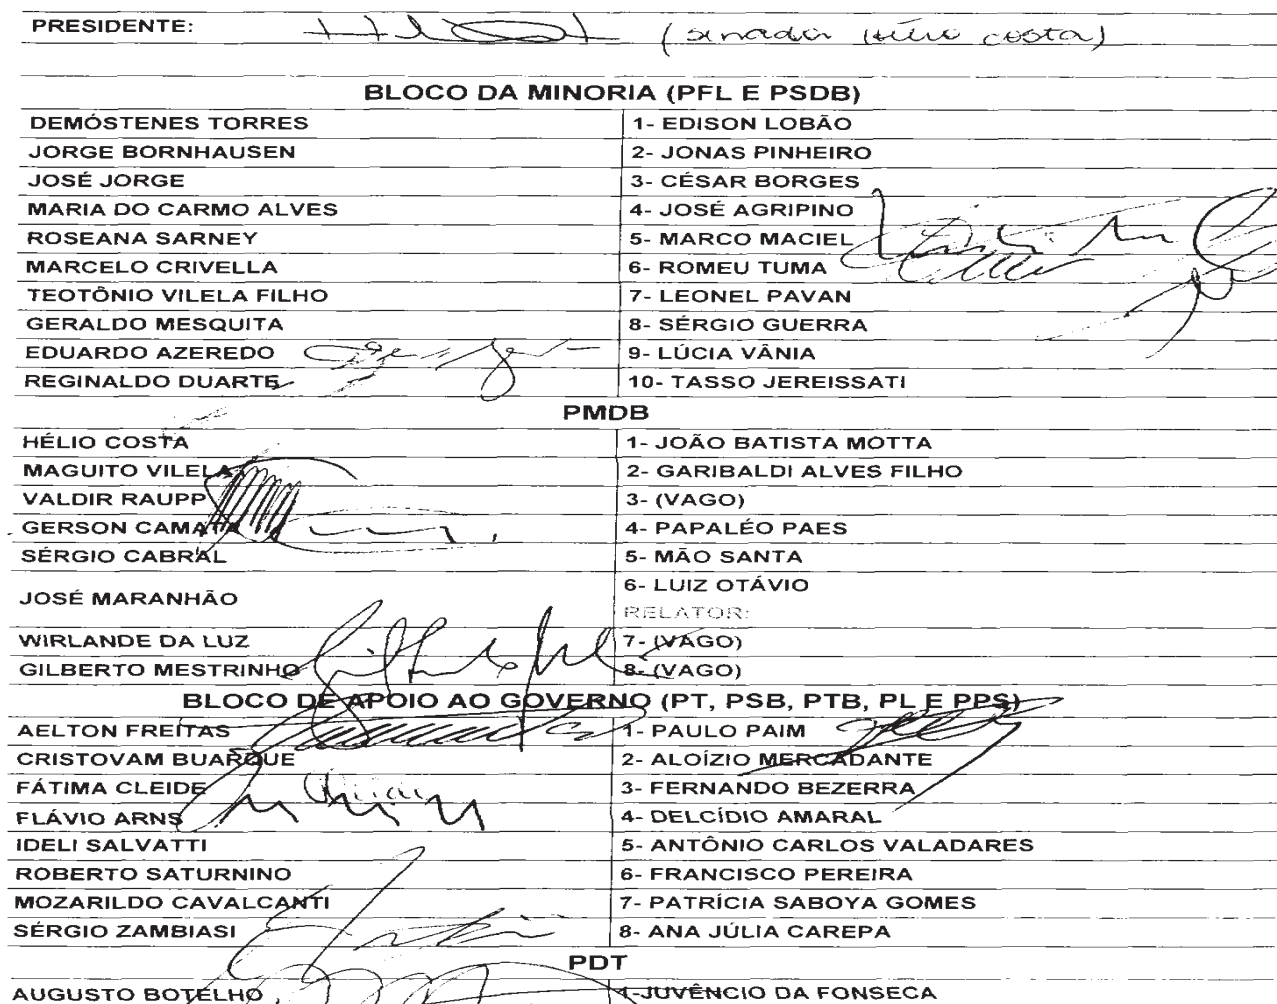 PRESIDENTE: (senador Hélio Costa)
BLOCO DA MINORIA (PFL E PSDB)
DEMÓSTENES TORRES 1- EDISON LOBÃO
JORGE BORNHAUSEN 2- JONAS PINHEIRO
JOSÉ JORGE 3- CÉSAR BORGES
MARIA DO CARMO ALVES 4- JOSÉ AGRIPINO
ROSEANA SARNEY 5- MARCO MACIEL
MARCELO CRIVELLA 6- ROMEU TUMA
TEOTÔNIO VILELA FILHO 7- LEONEL PAVAN
GERALDO MESQUITA 8- SÉRGIO GUERRA
EDUARDO AZEREDO 9- LÚCIA VÂNIA
REGINALDO DUARTE 10- TASSO JEREISSATI
PMDB
HÉLIO COSTA 1- JOÃO BATISTA MOTTA
MAGUITO VILELA 2- GARIBALDI ALVES FILHO
VALDIR RAUPP 3- (VAGO)
GERSON CAMATA 4- PAPALÉO PAES
SÉRGIO CABRAL 5- MÃO SANTA
JOSÉ MARANHÃO 6- LUIZ OTÁVIO
RELATOR:
WIRLANDE DA LUZ 7- (VAGO)
GILBERTO MESTRINHO 8- (VAGO)
BLOCO DE APOIO AO GOVERNO (PT, PSB, PTB, PL E PPS)
AELTON FREITAS 1- PAULO PAIM
CRISTOVAM BUARQUE 2- ALOÍZIO MERCADANTE
FÁTIMA CLEIDE 3- FERNANDO BEZERRA
FLÁVIO ARNS 4- DELCÍDIO AMARAL
IDELI SALVATTI 5- ANTÔNIO CARLOS VALADARES
ROBERTO SATURNINO 6- FRANCISCO PEREIRA
MOZARILDO CAVALCANTI 7- PATRÍCIA SABOYA GOMES
SÉRGIO ZAMBIASI 8- ANA JÚLIA CAREPA
PDT
AUGUSTO BOTELHO 1-JUVÊNCIO DA FONSECA